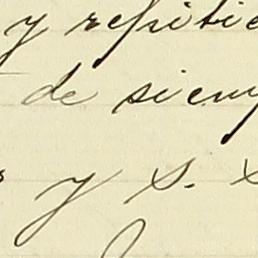 y repitie
de siem
y S. S